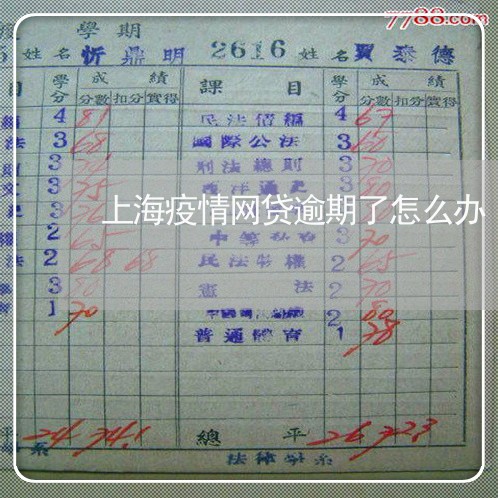 7788.com
學期
姓名 忻鼎明 2616 姓名 賈泰德
目 學分 成績 課目 學分 成績
分數 扣分 實得 分數 扣分 實得
4 81 民法債編 4 67
法 3 68 國際公法 3 60
3 刑法總則 3 70
3 75 西洋通史 3 80
上海疫情网贷逾期了怎么办
2 65 3 70
法 2 68 68 民法物權 2 65
3 80 憲法 2 70
1 70 2 80
普通體育 1 78
平 24 74.1 總平 26 72.3
系 法律學系